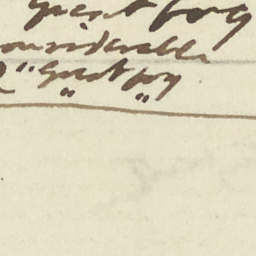 great fog
considerable
" great fog
" "